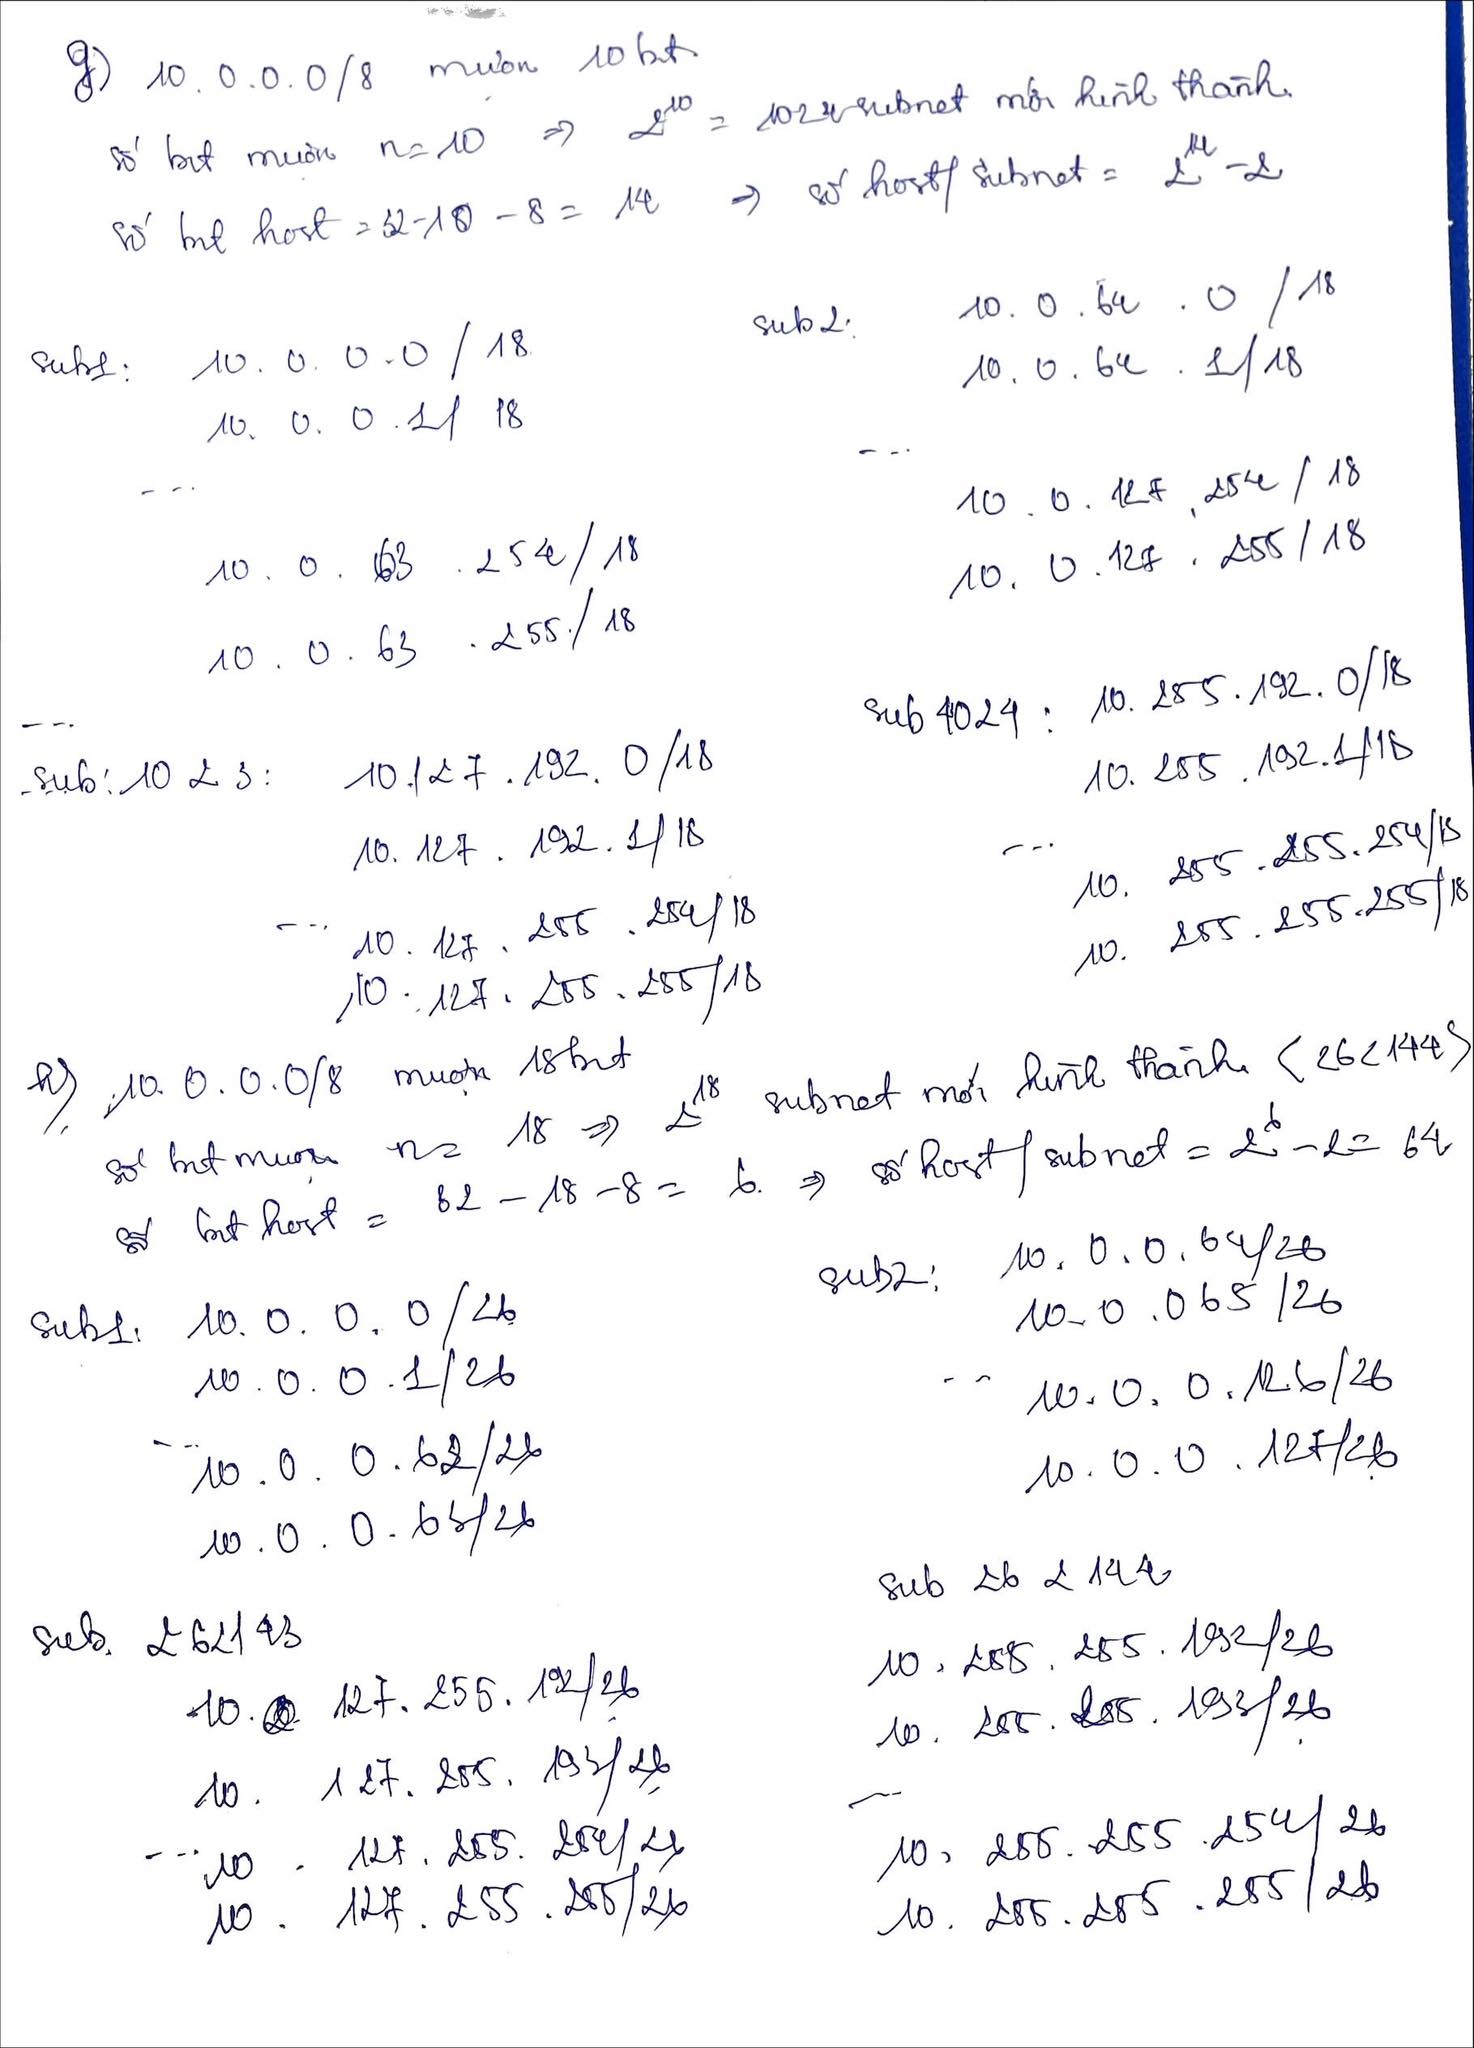 g) 10.0.0.0/8 mượn 10 bit
số bit mượn n=10 => 2^10 = 1024 subnet mới hình thành.
số bit host = 32-10-8 = 14 => số host/subnet = 2^14 - 2
sub1: 10.0.0.0/18
10.0.0.1/18
---
10.0.63.254/18
10.0.63.255/18
sub2: 10.0.64.0/18
10.0.64.1/18
---
10.0.127.254/18
10.0.127.255/18
---
sub: 1023: 10.127.192.0/18
10.127.192.1/18
---
10.127.255.254/18
10.127.255.255/18
sub 1024: 10.255.192.0/18
10.255.192.1/18
---
10.255.255.254/18
10.255.255.255/18
h) 10.0.0.0/8 mượn 18 bit
số bit mượn n= 18 => 2^18 subnet mới hình thành (262144)
số bit host = 32-18-8 = 6. => số host/subnet = 2^6 - 2 = 64
sub1. 10.0.0.0/26
10.0.0.1/26
---
10.0.0.62/26
10.0.0.63/26
sub2: 10.0.0.64/26
10.0.065/26
--
10.0.0.126/26
10.0.0.127/26
sub. 262143
10. 127.255.192/26
10. 127.255.193/26
---
10. 127.255.254/26
10. 127.255.255/26
sub 262144
10.255.255.192/26
10.255.255.193/26
---
10.255.255.254/26
10.255.255.255/26